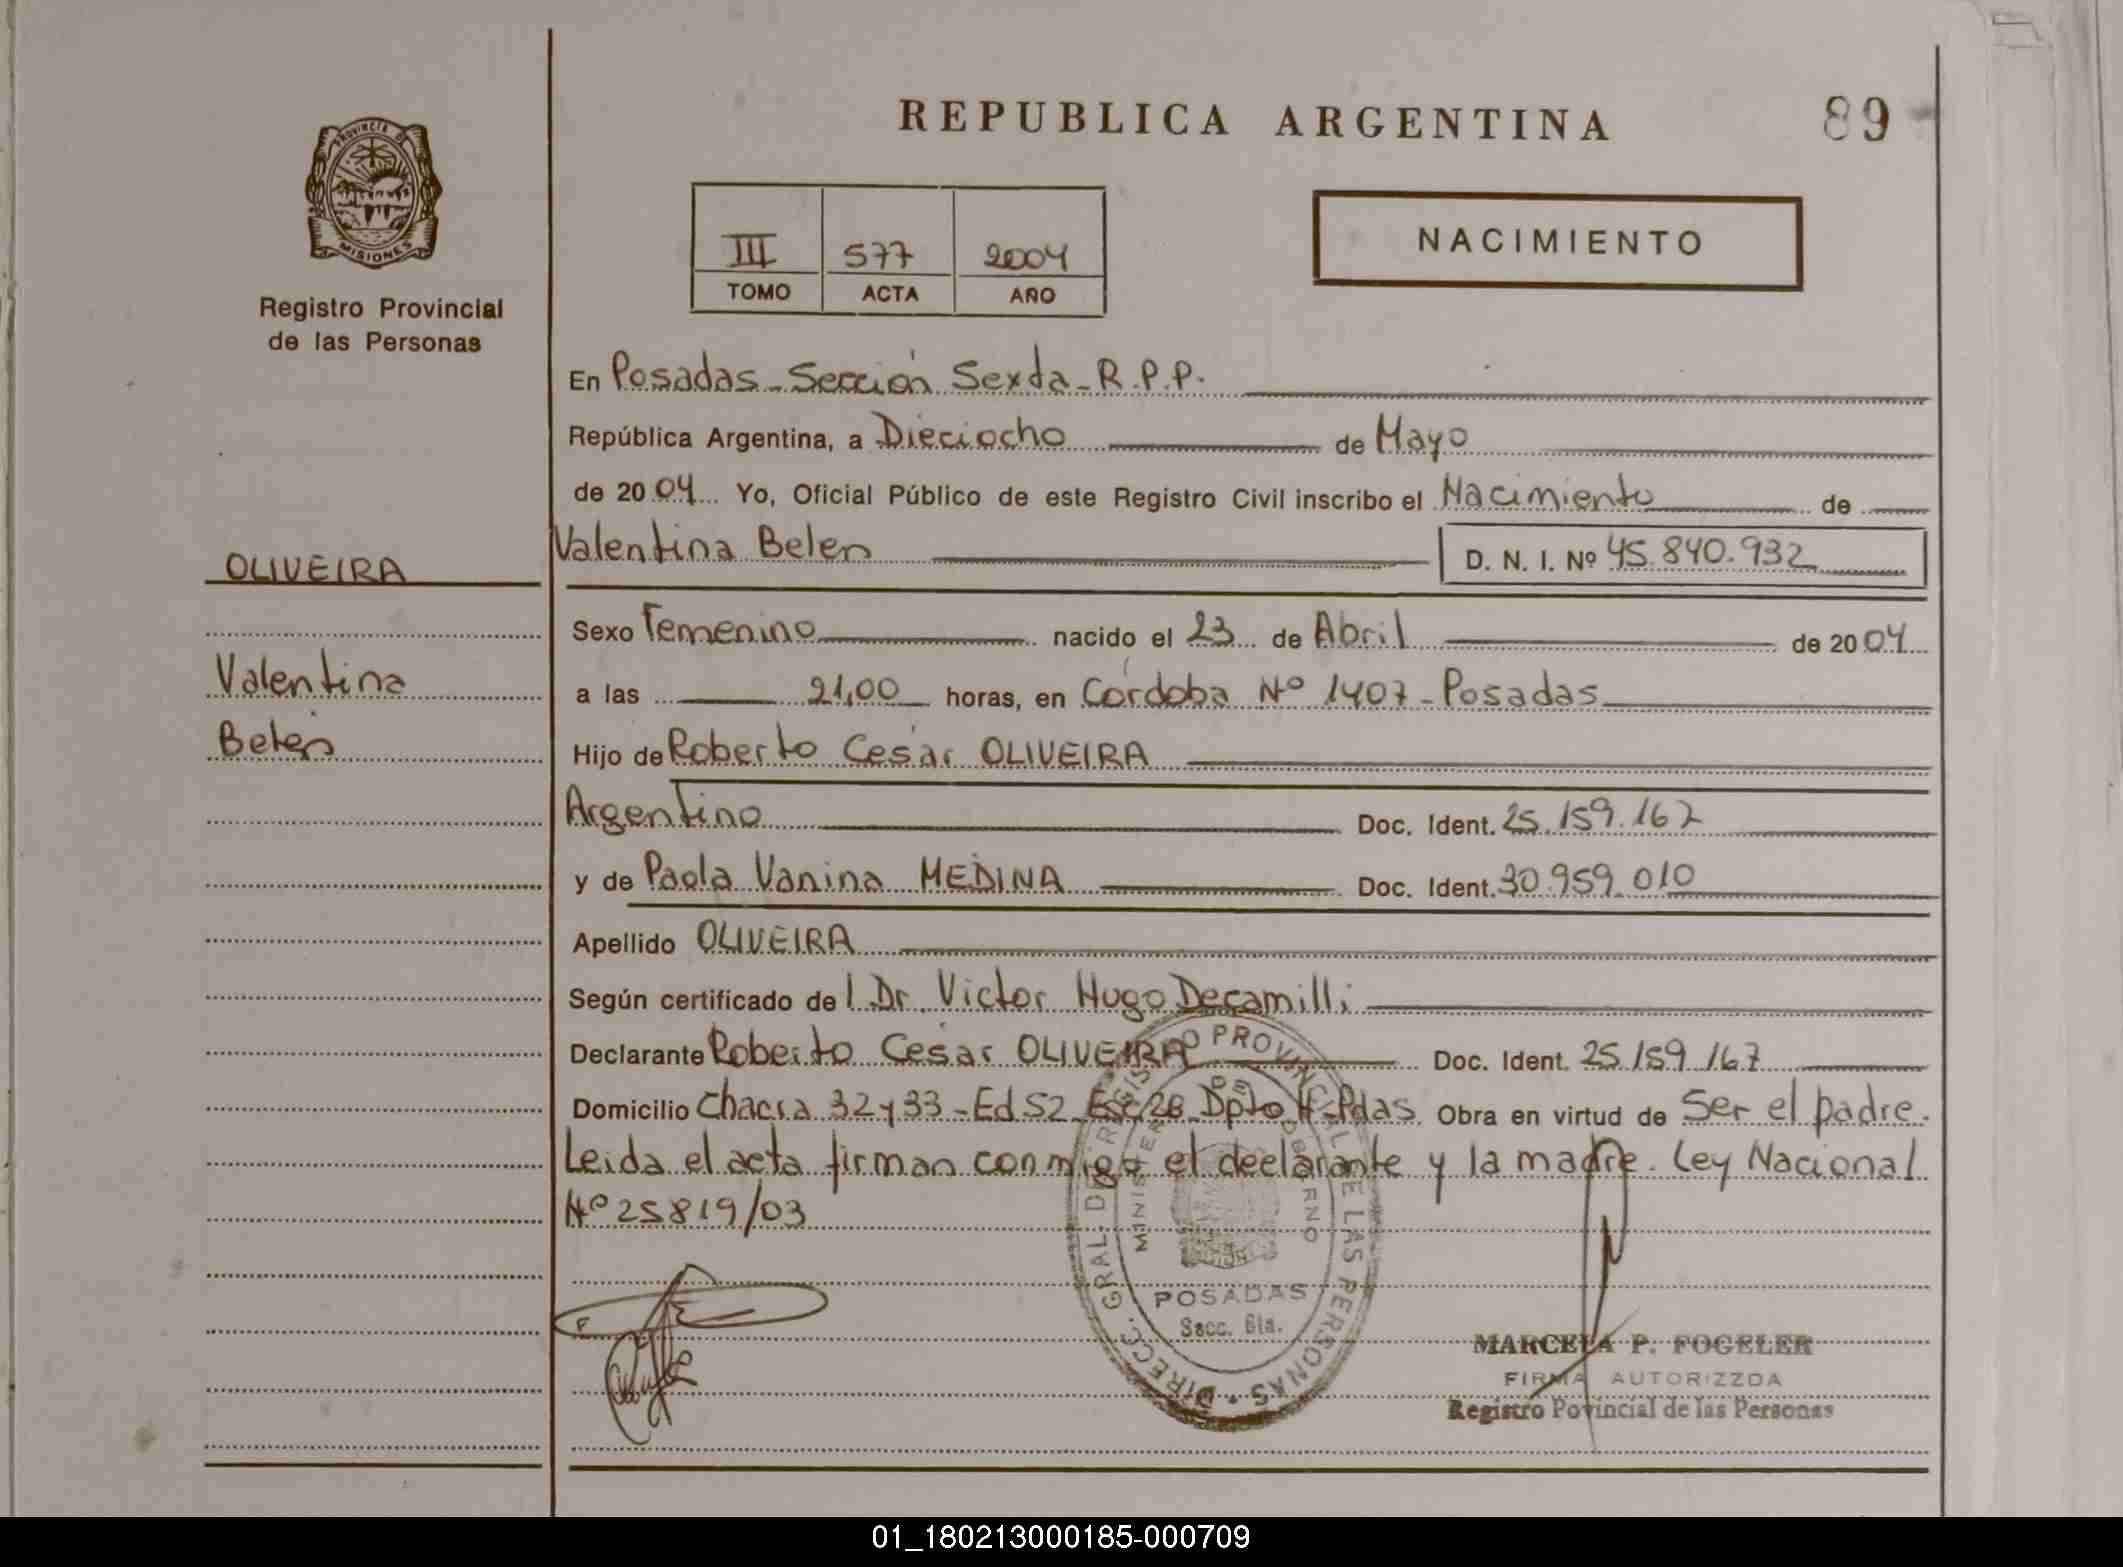 REPUBLICA ARGENTINA
89
PROVINCIA DE
MISIONES
Registro Provincial
de las Personas
III 577 2004
TOMO ACTA AÑO
NACIMIENTO
En Posadas - Sección Sexta - R.P.P.
República Argentina, a Dieciocho de Mayo
de 2004 Yo, Oficial Público de este Registro Civil inscribo el Nacimiento de
Valentina Belen D. N. I. Nº 45.840.932
OLIVEIRA
Valentina
Belén
Sexo Femenino nacido el 23 de Abril de 2004
a las 21,00 horas, en Córdoba Nº 1407 - Posadas
Hijo de Roberto César OLIVEIRA
Argentino Doc. Ident. 25.159.167
y de Paola Vanina MEDINA Doc. Ident. 30.959.010
Apellido OLIVEIRA
Según certificado del Dr. Victor Hugo Decamilli
Declarante Roberto César OLIVEIRA Doc. Ident. 25.159.167
Domicilio Chacra 32 y 33 - Ed 52 Dpto Pdas. Obra en virtud de Ser el padre.
Leida el acta firman conmigo el declarante y la madre. Ley Nacional
Nº 25819/03
DIRECC. GRAL. DE REGISTRO PROVINCIAL DE LAS PERSONAS
MINISTERIO DE GOBIERNO
POSADAS
Secc. 6ta.
MARCELA P. FOGELER
FIRMA AUTORIZZDA
Registro Povincial de las Personas
01_180213000185-000709